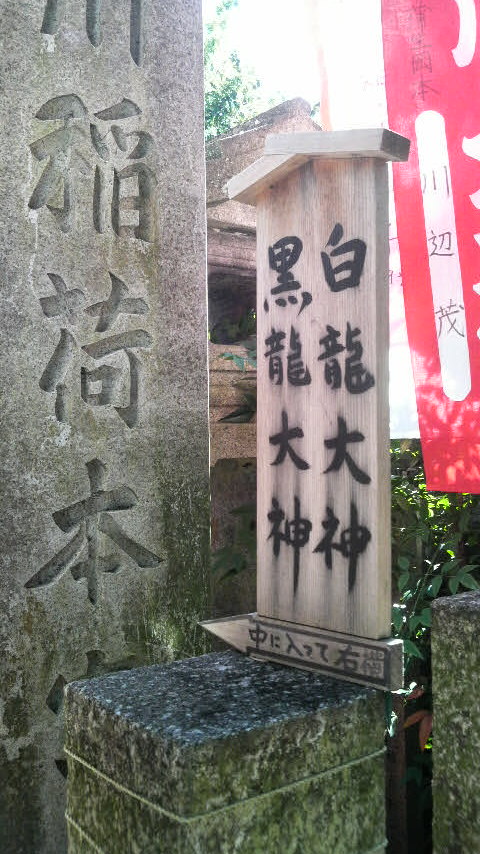 川稲荷本
白龍大神
黒龍大神
中に入って右側
川辺茂